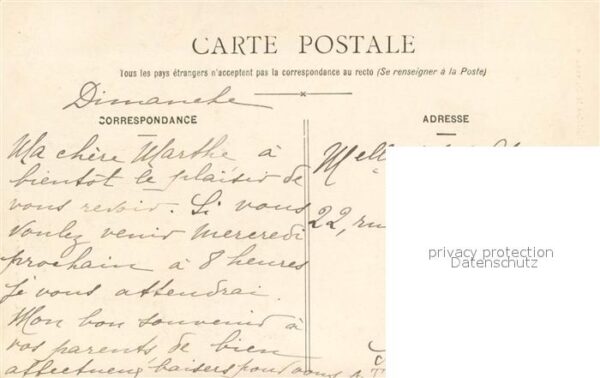 CARTE POSTALE
Tous les pays étrangers n'acceptent pas la correspondance au recto (Se renseigner à la Poste)
Dimanche
CORRESPONDANCE
Ma chère Marthe à
bientôt le plaisir de
vous revoir. Si vous
voulez venir Mercredi
prochain à 8 heures
je vous attendrai.
Mon bon souvenir à
vos parents de bien
affectueux baisers pour vous
ADRESSE
Melle
22, rue
privacy protection
Datenschutz